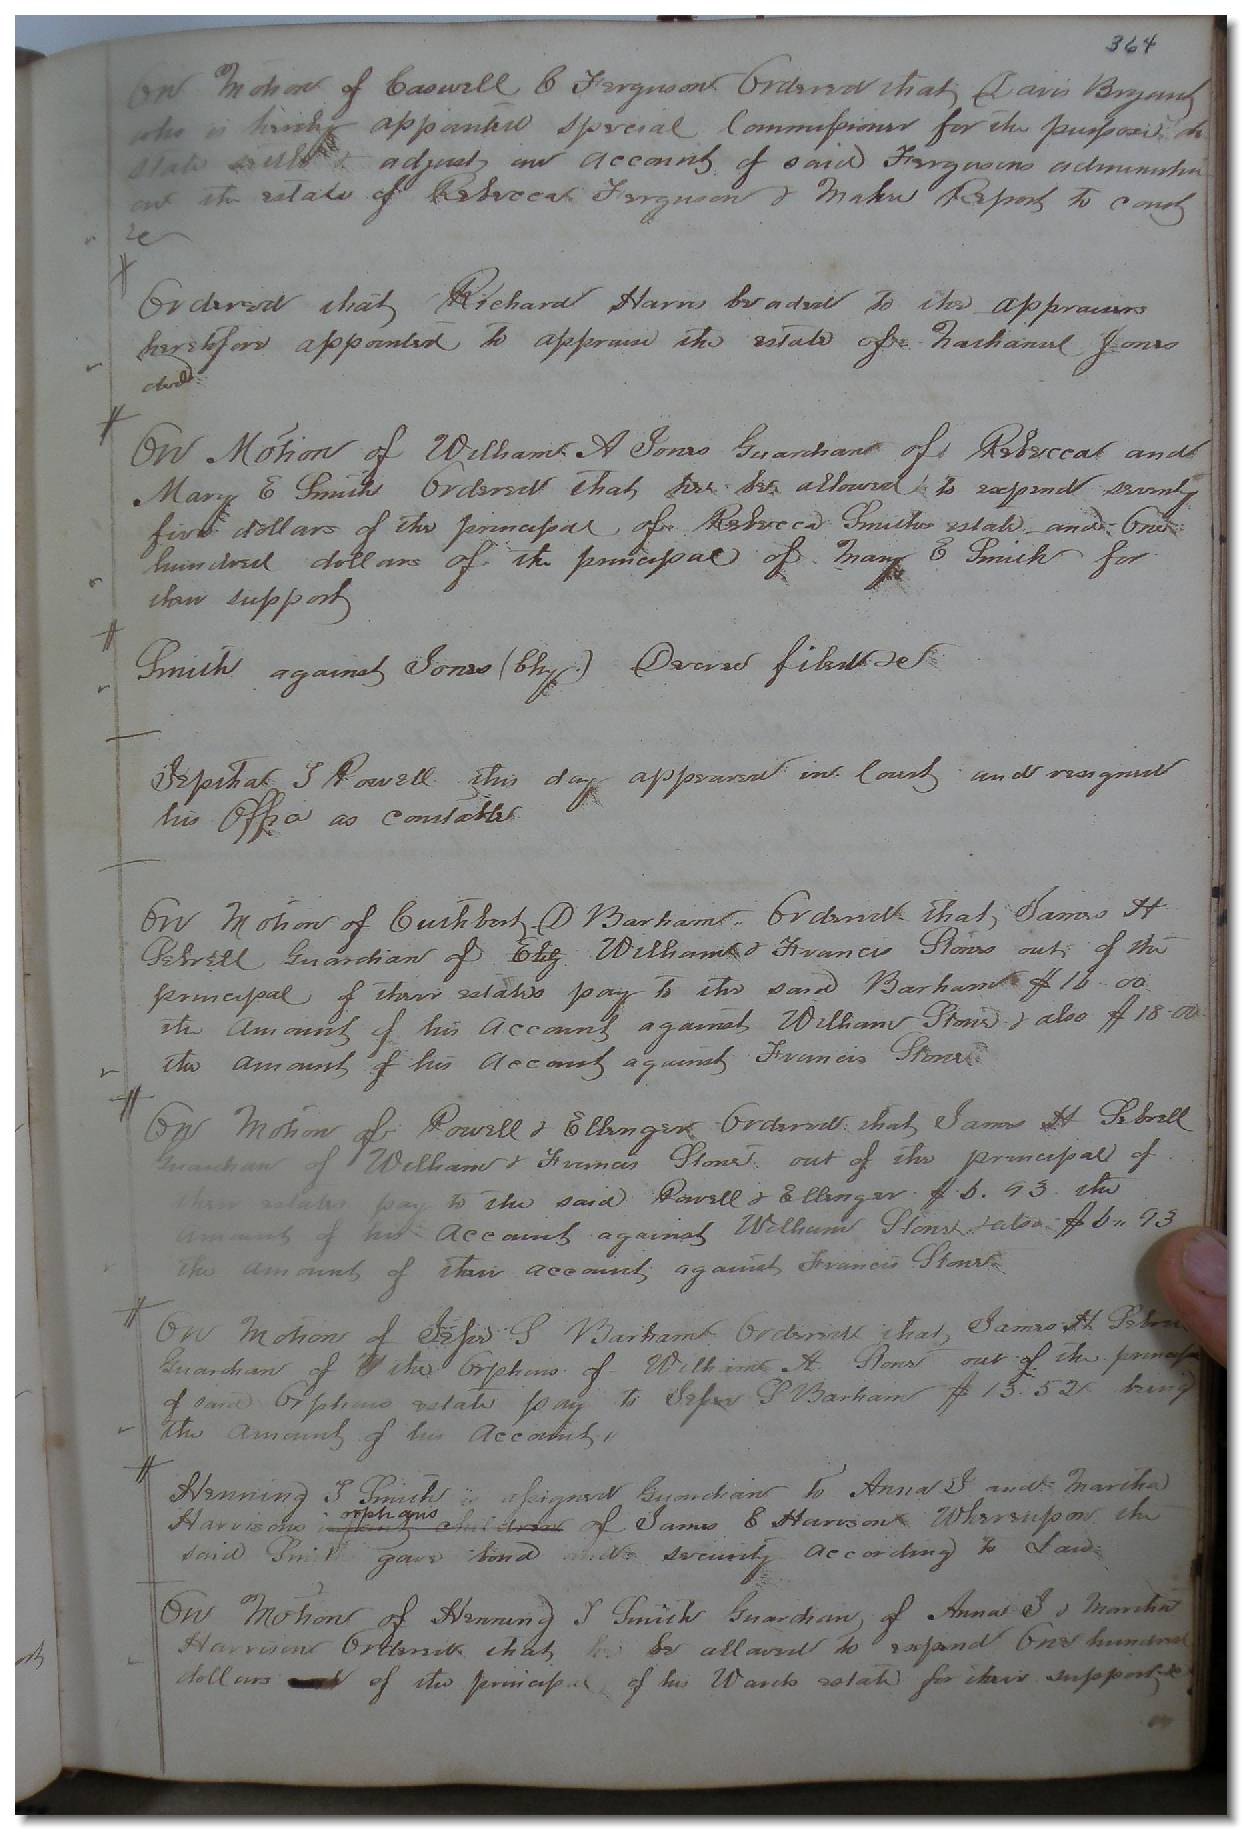 364
On Motion of Caswell C Ferguson Ordered that Davis Bryant
who is hereby appointed special Commissioner for the purpose do
state settle & adjust an account of said Fergusons administration
on the estate of Rebecca Ferguson & Make Report to court
&c
Ordered that Richard Harris be aded to the appraisers
heretofore appointed to appraise the estate of Nathaniel Jones
decd
On Motion of William A Jones Guardian of Rebecca and
Mary E Smith Ordered that he be allowed to expend seventy
five dollars of the principal of Rebecca Smiths estate and One
hundred dollars of the principal of Mary E Smith for
their support
Smith against Jones (Chy) Decree filed &c
Jepthat T Powell this day appeared in Court and resigned
his Office as constable
On Motion of Cuthbert D Barham Ordered that James H
Sebrell Guardian of William & Francis Stones out of the
principal of their estates pay to the said Barham $16 00
the amount of his Account against William Stone & also $18 00
the amount of his Account against Francis Stone
On Motion of Powell & Ellenger Ordered that James H Sebrell
Guardian of William & Francis Stone out of the principal of
their estates pay to the said Powell & Ellenger $6. 93 the
amount of his Account against William Stone & also $6 " 93
the amount of their account against Francis Stone
On Motion of Jesse S Barham Ordered that James H Sebrell
Guardian of the Orphans of William H Stone out of the principal
of said Orphans estate pay to Jesse S Barham $13.52 being
the amount of his Account "
Henning T Smith is assigned Guardian to Anna J and Martha
orphans
Harrisons infant children of James E Harrison Whereupon the
said Smith gave bond and security according to Law
On Motion of Henning T Smith Guardian of Anna J & Martha
Harrison Ordered that he be allowed to expend One hundred
dollars of the principal of his Wards estate for their support &c